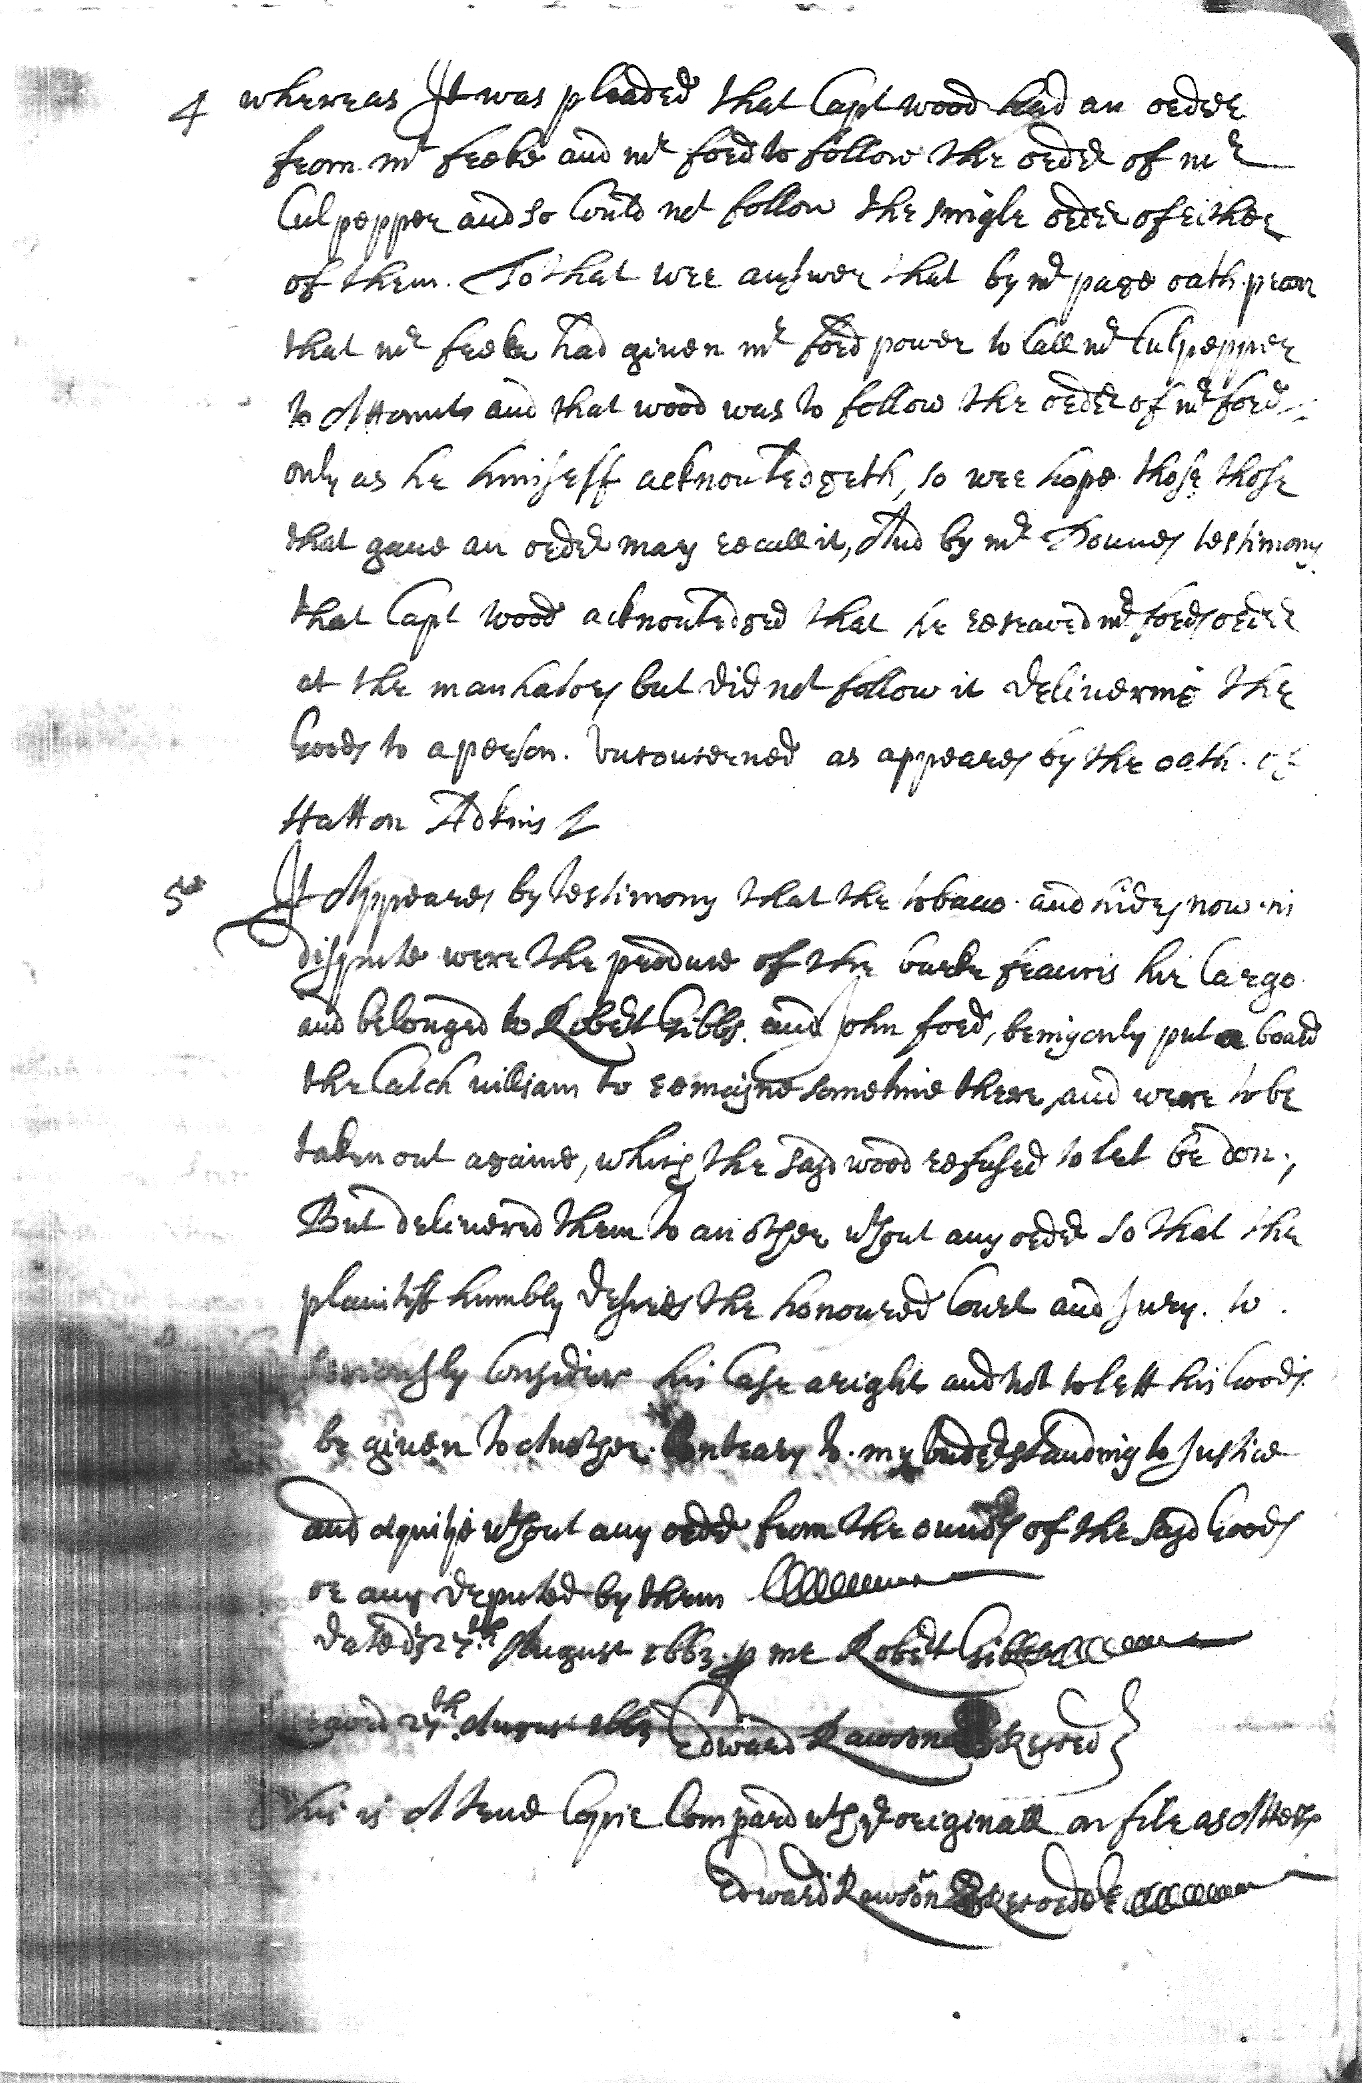 4 whereas It was pleaded that Capt wood had an order
from mr freeke and mr ford to follow the order of mr
Culpepper and so Could not follow the single order of either
of them. To that wee answer that by mr page oath
that mr freeke had given mr ford power to Call mr Culpepper
to Accounts and that wood was to follow the order of mr ford
only as he himselff acknowledgeth, so wee hope those those
that gaue an order may recall it, And by mr Dounes testimony
that Capt wood acknowledged that he receaued mr fords order
at the manhatoes but did not follow it deliuering the
Goods to a person. Vnconcerned as appeares by the oath of
Hatton Adkins
5ly It Appeares by testimony that the tobacco and hides now in
dispute were the produce of the barke francis her Cargo
and belonged to Robert Gibbs. and John ford, being only put a board
the Catch william to remayne sometime there, and were to be
taken out againe, which the sayd wood refused to let be don,
But deliuered them to another wthout any order so that the
plaintiff humbly desires the honoured Court and Jury. to
seriously Consider his Case aright and not to lett his Goods
be given to Another. Contrary to my vnderstanding to Justice
and equitye wthout any order from the ownrs of the sayd Goods
or any deputed by them
dated 27th August 1663. p me Robert Gibbs
27th August 1663 Edward Rawson Record
this is A true Copie Compard wth ye originall on file as Attests
Edward Rawson Recorder